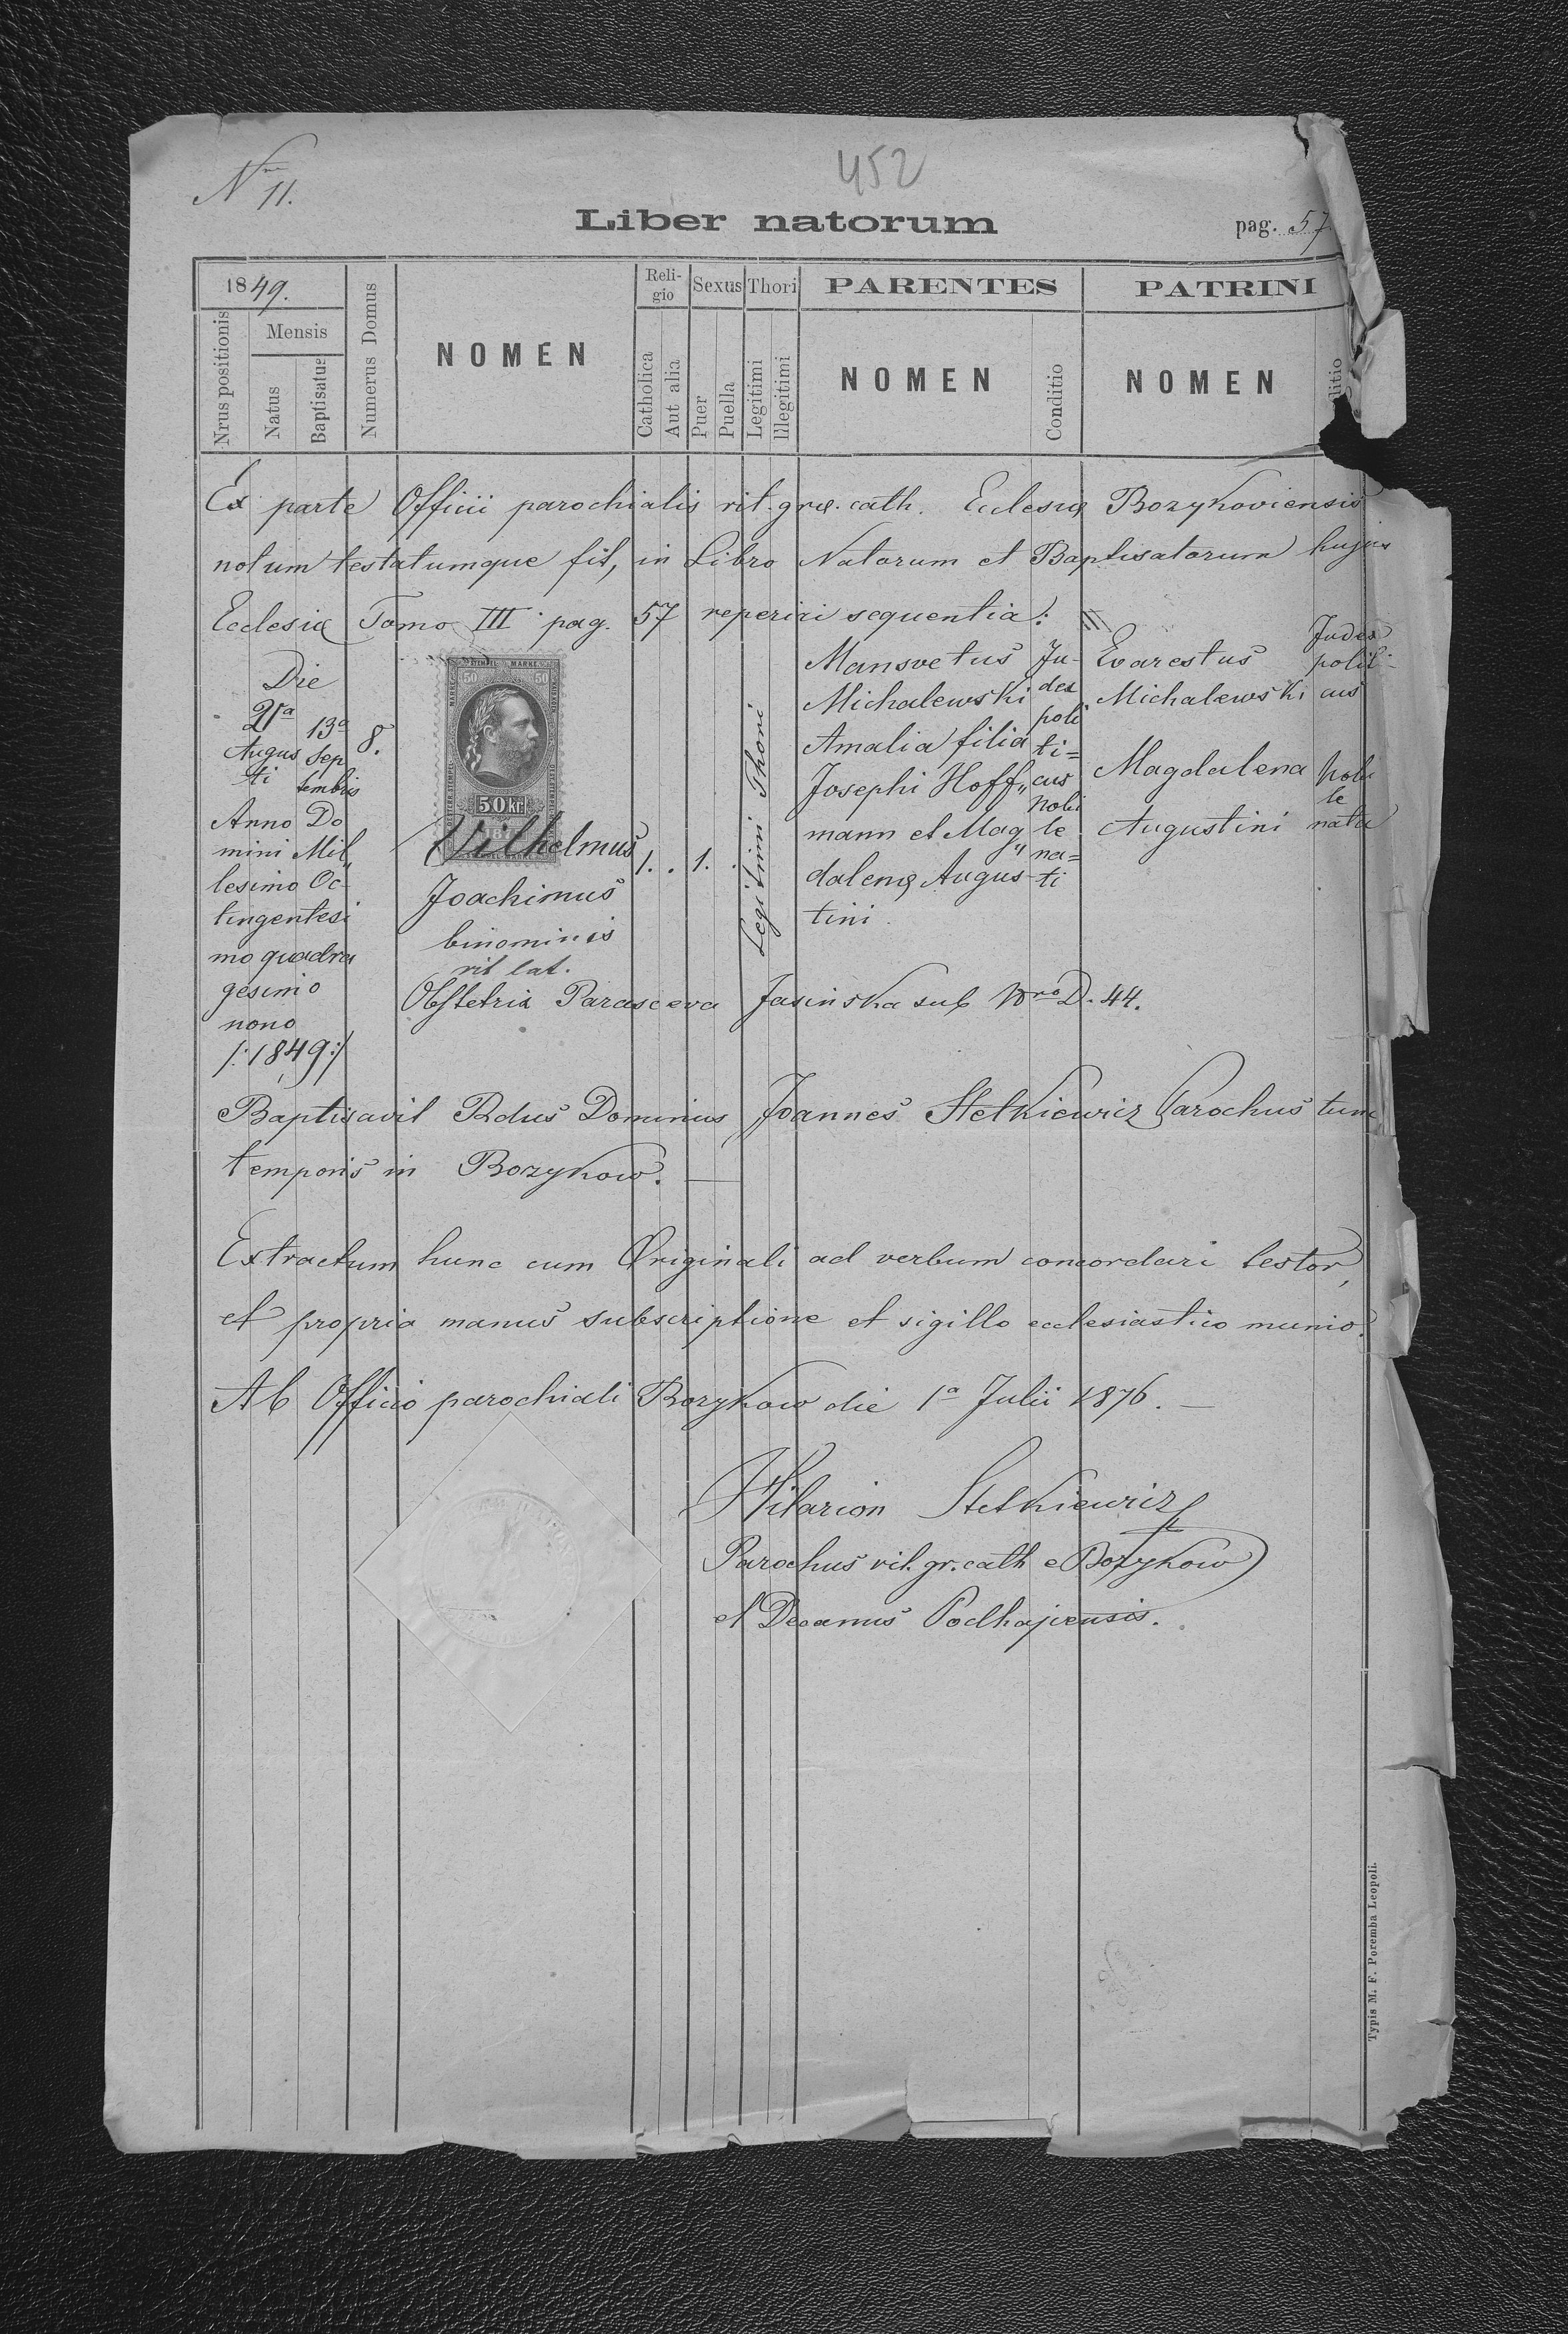 Nro 11.
452
Liber natorum
pag. 57
1849.
Nrus positionis
Mensis
Natus
Baptisatus
Numerus Domus
NOMEN
Religio
Catholica
Aut alia
Sexus
Puer
Puella
Thori
Legitimi
Illegitimi
PARENTES
NOMEN
Conditio
PATRINI
NOMEN
ditio
Ex parte Officii parochialis rit. græ. cath. Eclesiæ Bozykoviensis
notum testatumque fit, in Libro Natorum et Baptisatorum hujus
Ecclesiæ Tomo III pag. 57 reperiri sequentia:
Die
21a
Augus
ti
13a
Sep
tembris
Anno Do
mini Mil„
lesimo Oc-
tingentesi
mo quadra
gesimo
nono
/:1849:/
8.
STEMPEL MARKE
50 50
50 kr
Vilhelmus
Joachimus
binominis
rit lat.
1. . 1. .
Legitimi Thori
Mansvetus
Michalewski
Amalia filia
Josephi Hoff„
mann et Mag„
dalenæ Augus-
tini
Ju-
dex
poli
ti=
cus
nobi
le
na=
ti
Evarestus
Michalewski
Magdalena
Augustini
Judex
polit-
cus
Nobi
le
nata
Obstetrix Parasceva Jasinska sub Nro D. 44.
Baptisavit Rdus Dominus Joannes Stetkiewicz Parochus tunc
temporis in Bozykow.
Extractum hunc cum Originali ad verbum concordari testor,
et propria manus subscriptione et sigillo ecclesiastico munio.
Ab Officio parochiali Bozykow die 1a Julii 1876.
Hilarion Stetkiewicz
Parochus rit. gr. cath e Bozykow
et Decanus Podhajcensis.
Typis M. F. Poremba Leopoli.